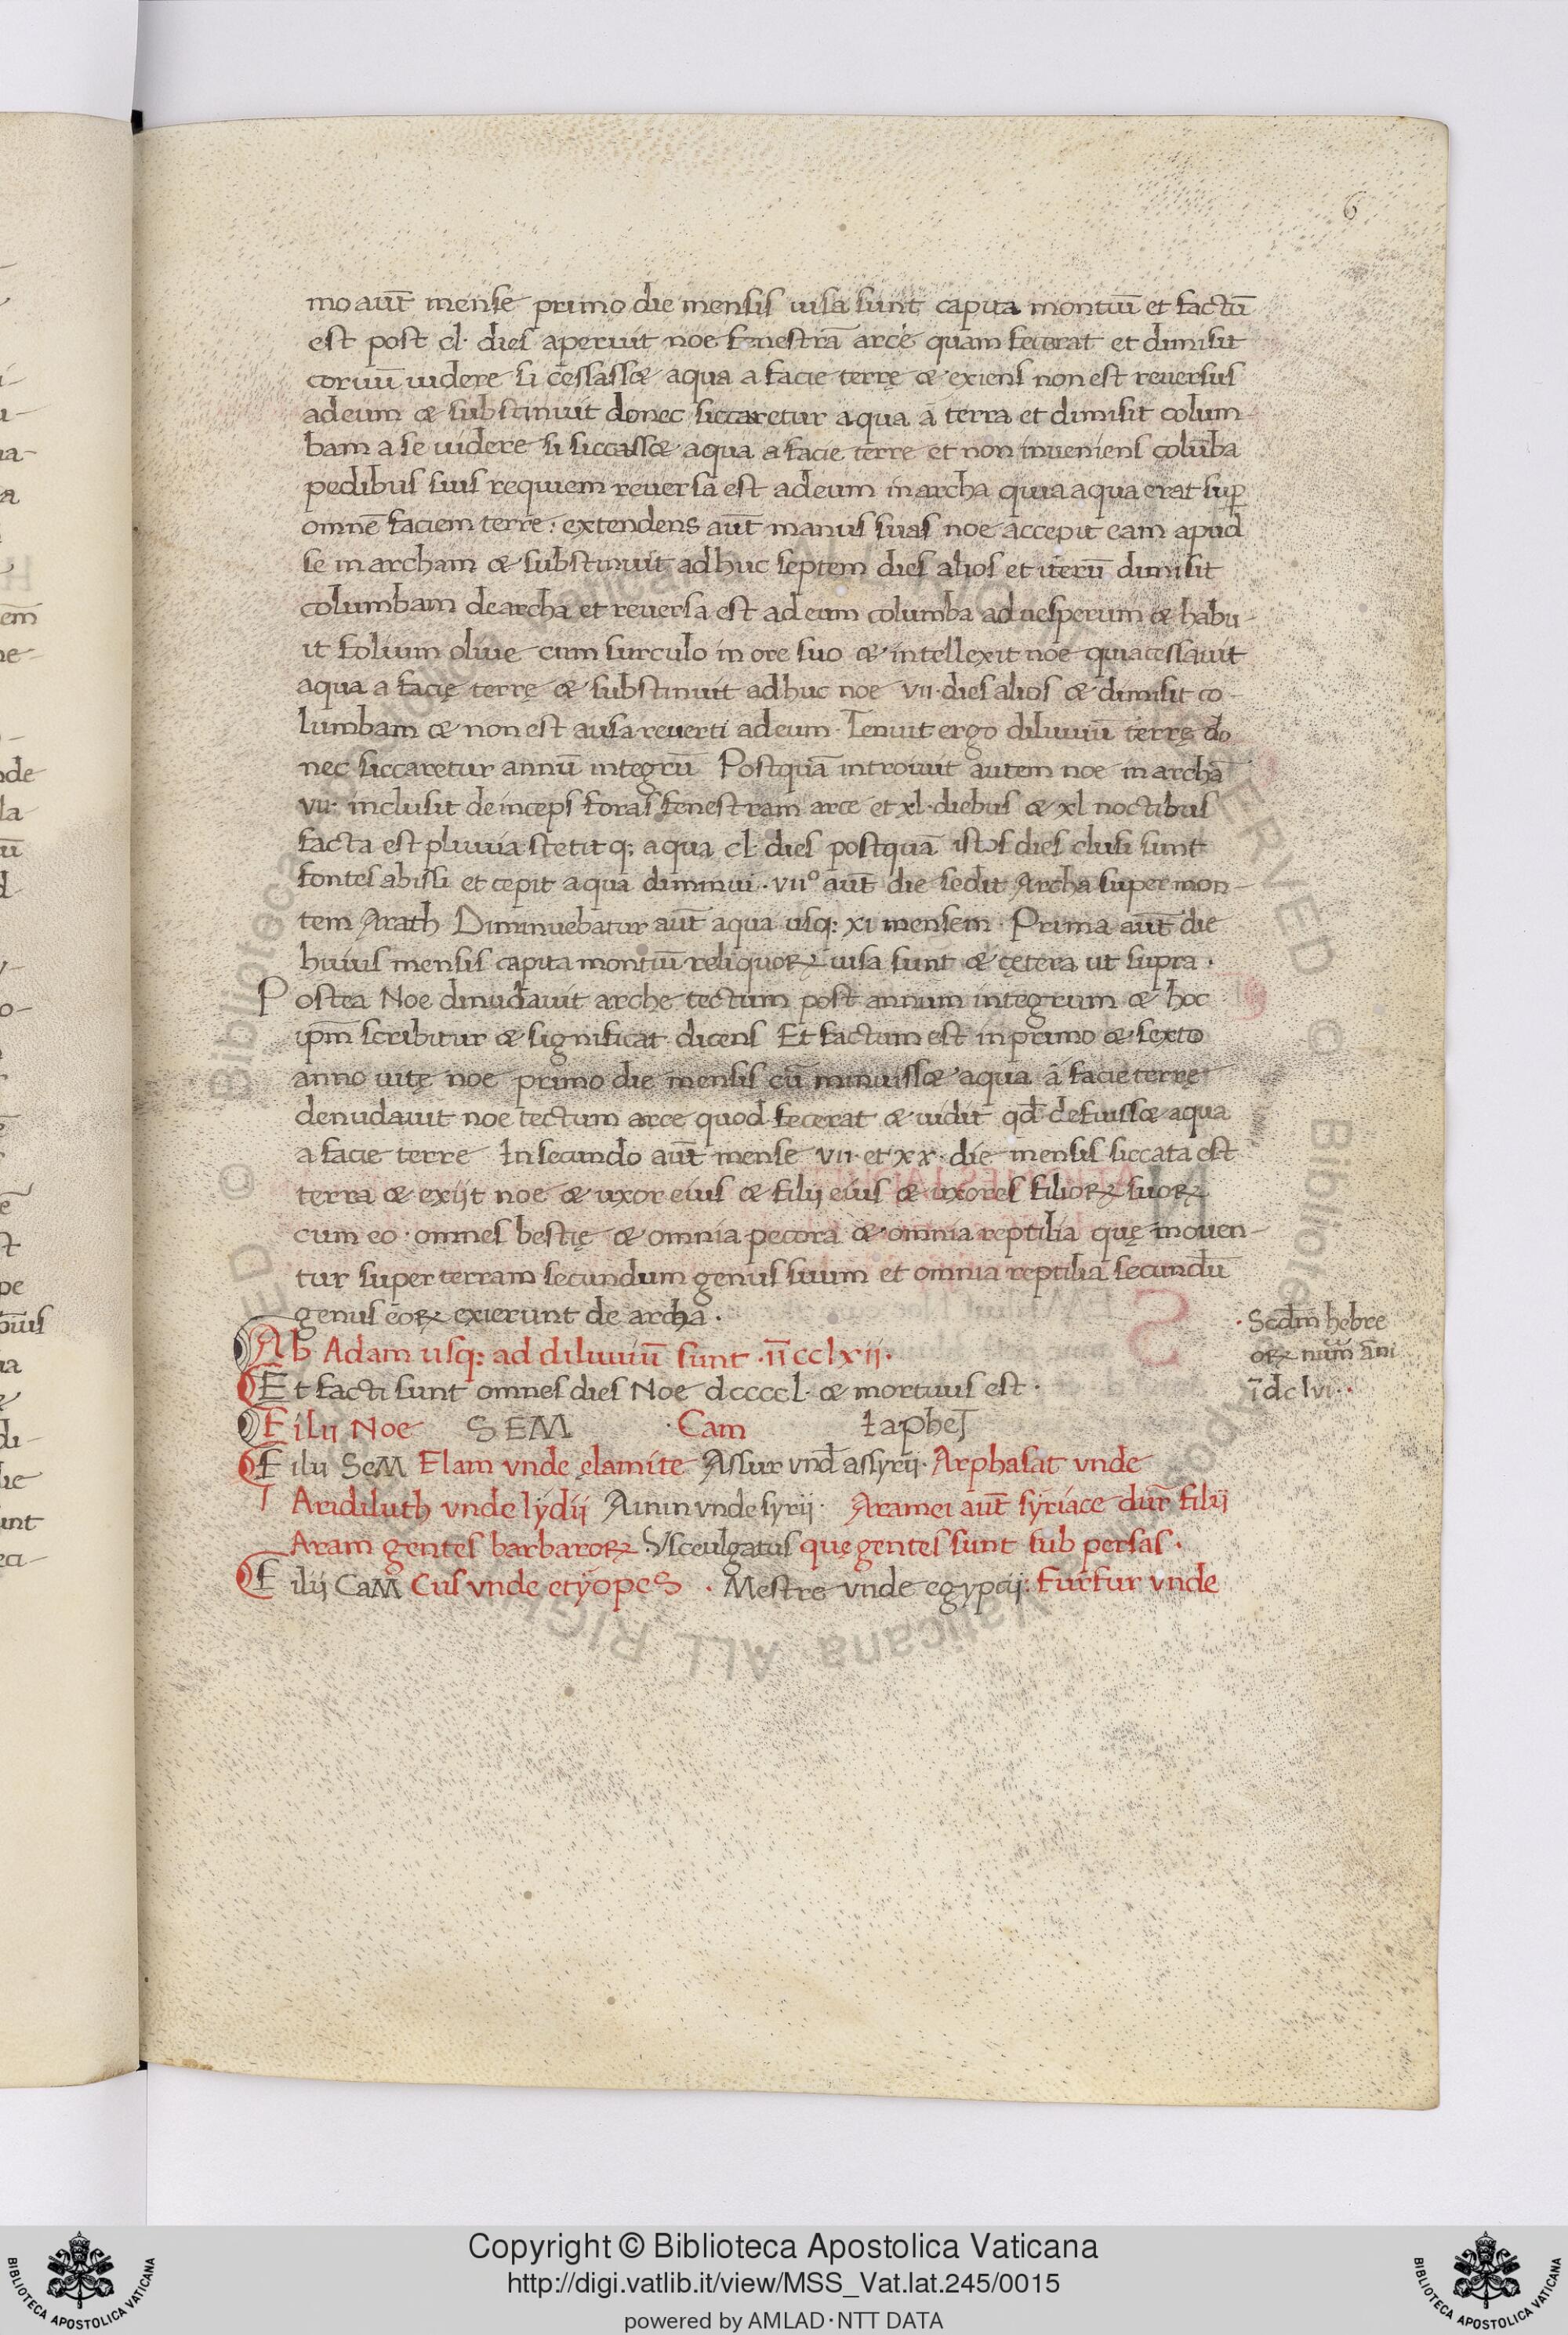 6
mo aut̄ mense primo die mensis uisa sunt capita montiū et factū
est post cl· dies aperuit noe fenestrā arcę quam fecerat et dimisit
coruū uidere si cessasset aqua a facie terrę et exiens non est reuersus
ad eum et substinuit donec siccaretur aqua a terra et dimisit colum-
bam a se uidere si siccasset aqua a facie terre et non inueniens colūba
pedibus suis requiem reuersa est ad eum in archa quia aqua erat sup̱
omnē faciem terre: extendens aut̄ manus suas noe accepit eam apud
se in archam et substinuit adhuc septem dies alios et iterū dimisit
columbam de archa et reuersa est ad eum columba ad uesperum et habu-
it folium oliue cum surculo in ore suo et intellexit noe quia cessauit
aqua a facię terrę et substinuit adhuc noe vii· dies alios et dimisit co-
lumbam et non est ausa reuerti ad eum· Tenuit ergo diluuiū terrę do
nec siccaretur annū integrū Postquā introiuit autem noe in archā
vii· inclusit deinceps foras fenestram arce et xl· diebus et xl noctibus
facta est pluuia stetitq; aqua cl· dies postquā istos dies clusi sunt
fontes abissi et cepit aqua diminui· viiº aut̄ die sedit Archa super mon-
tem Arath Diminuebatur aut̄ aqua usq; xi mensem· Prima aut̄ die
huius mensis capita montiū reliquoꝝ uisa sunt et cętera ut supra·
Postea Noe dinudauit arche tectum post annum integrum et hoc
ip̄m scribitur et significat dicens Et factum est in primo et sexto
anno uitę noe primo die mensis cū minuisset aqua a facie terrę
denudauit noe tectum arce quod fecerat et uidit qd̄ defuisset aqua
a facie terre In secundo aut̄ mense vii· et xx· die mensis siccata est
terra et exijt noe et uxor eius et filij eius et uxores filioꝝ suoꝝ
cum eo· omnes bestię et omnia pecora et omnia reptilia quę mouen-
tur super terram secundum genus suum et omnia reptilia secundū
genus eoꝝ exierunt de archa·
Ab Adam usq; ad diluuiū sunt ·īīcclxii·
·Scd̄m hebre
oꝝ num̄ āni
īdclvi··
Et facti sunt omnes dies Noe dccccl· et mortuus est·
Filii Noe SEM ·Cam Iaphet
Filii SeM Elam vnde elamite Assur vnd̄ assyrii· Arphasat vnde
Aridiluth vnde lydii Ainin vnde syrij· Aramei aut̄ syriace dur̄ filij
Aram gentes barbaroꝝ· quę gentes sunt sub persas·
Filij CaM Cus vnde etyopes · Mestre vnde egyptij: Furfur vnde
Copyright © Biblioteca Apostolica Vaticana
http://digi.vatlib.it/view/MSS_Vat.lat.245/0015
powered by AMLAD·NTT DATA
BIBLIOTECA APOSTOLICA VATICANA
BIBLIOTECA APOSTOLICA VATICANA